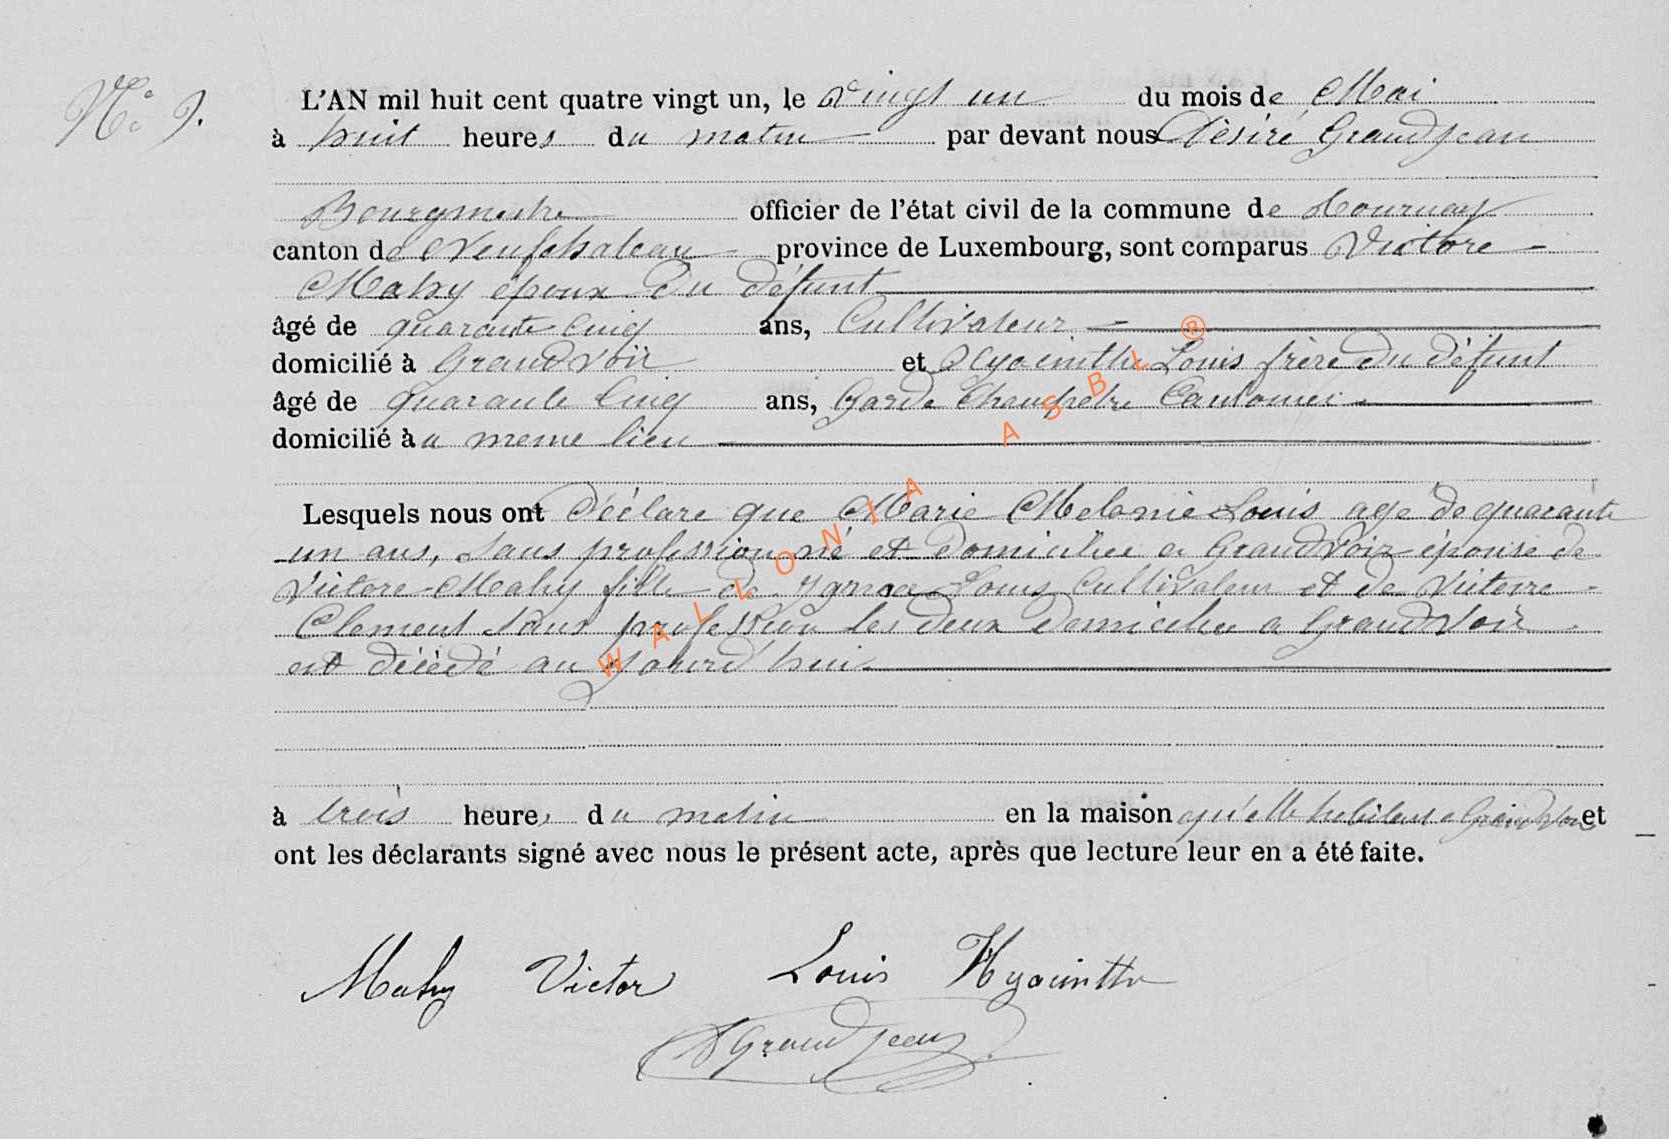 N° 9.
L'AN mil huit cent quatre vingt un, le vingt un du mois de Mai
à huit heures du matin par devant nous Désiré Grandjean
Bourgmestre officier de l'état civil de la commune de Tournay
canton de Neufchateau province de Luxembourg, sont comparus Victore
Mahy époux du défunt
âgé de quarante cinq ans, Cultivateur
domicilié à Grandvoir et Hyacinthe Louis frère du défunt
âgé de quarante cinq ans, Garde Champetre Cantonier
domicilié au meme lieu
Lesquels nous ont déclare que Marie Melanie Louis age de quarante
un ans, sans profession né et domiciliee a Grandvoir épouse de
Victore Mahy fille de Ignace Louis Cultivateur et de Victoire
Clement sans profession les deux domicilie a Grandvoir
est décédé au jourd'hui
à trois heure, du matin en la maison qu'elle habitent a Grandvoir et
ont les déclarants signé avec nous le présent acte, après que lecture leur en a été faite.
Mahy Victor Louis Hyacinthe
D Grandjean
WALLONIA ASBL ®